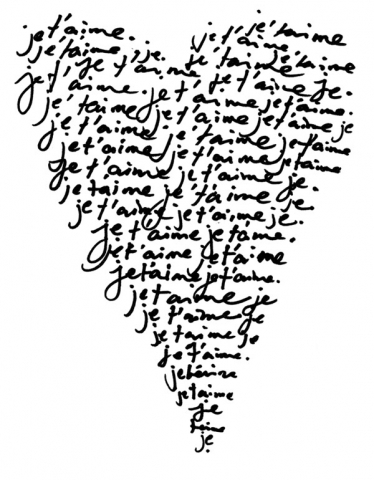 je t'aime. je t'aime
je t'aime. je. je t'aime. je t'aime
je t' je t'aime je t'aime je t'aime
je t'aime. je t' je t'aime je.
je t'aime je t'aime je t'aime.
je t'aime. je t'aime je t'aime je
je t'aime je t'aime je t'aime
je t'aime je t'aime je t'aime
je t'aime je t'aime je.
je taime je t'aime je
je t'aime je t'aime je.
je t'aime je taime.
je t'aime je t'aime.
je taime je t'aime.
je taime je
je t'aime je
je taime je
je t'aime.
je
je taime
je
taime
je